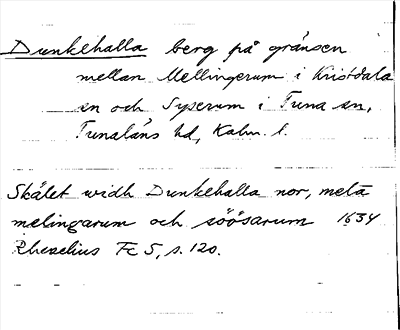 Dunkehalla berg på gränsen
mellan Mellingerum i Kristdala
sn och Syserum i Tuna sn,
Tunaläns hd, Kalm. l.
Skälet widh Dunkehalla nor, melā
melingarum och söösarum 1634
Rhezelius Fc 5, s. 120.